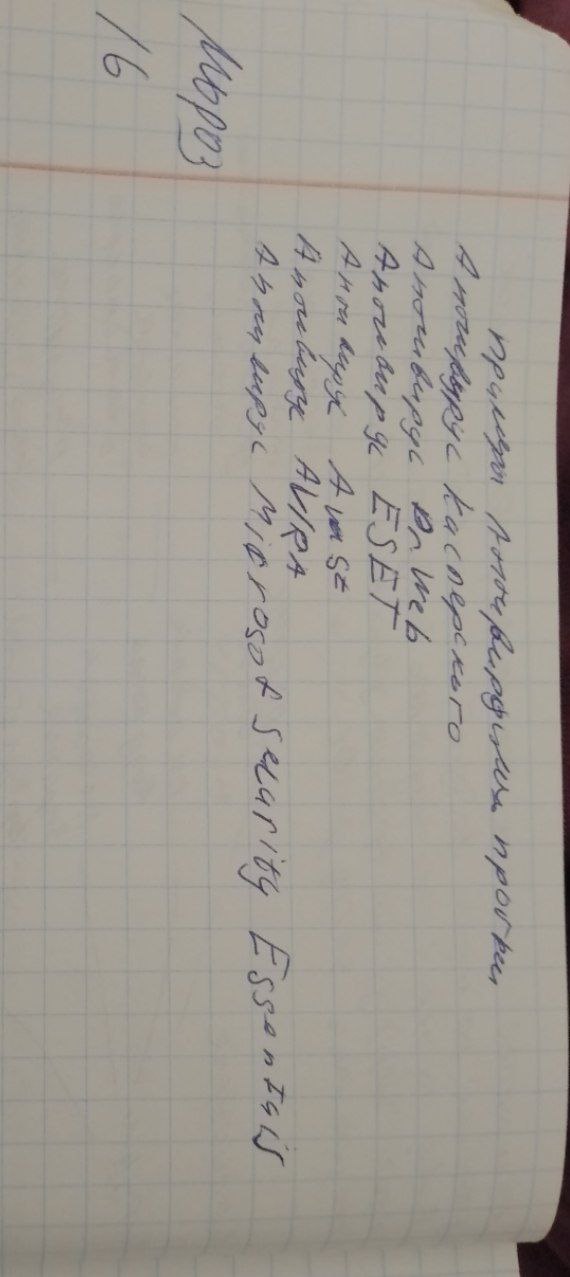 Примеры Антивирусных прогрмм
Антивирус Касперского
Антивирус Dr. Web
Антивирус ESET
Антивирус Avast
Антивирус AVIRA
Антивирус Microsoft Security Essentials
16